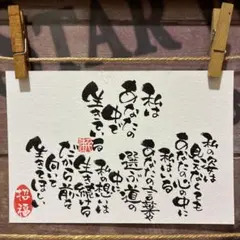 私の姿は
見えなくても
あなたの心の中に
私はいる
あなたの言葉や
選ぶ道の
中に
私の想いは
生き続ける
だから前を
向いて
生きてほしい
私は
あなたの
中で
生きている
招福
STAR